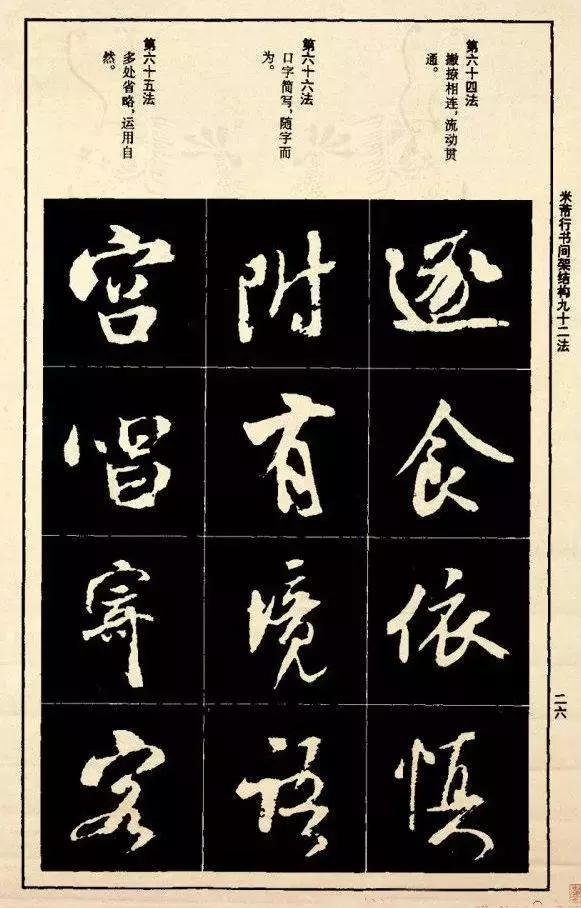 米芾行书间架结构九十二法
二六
第六十四法
撇捺相连，流动贯
通。
逐食依慎
第六十六法
口字简写，随字而
为。
附有境語
第六十五法
多处省略，运用自
然。
宫唱寄客